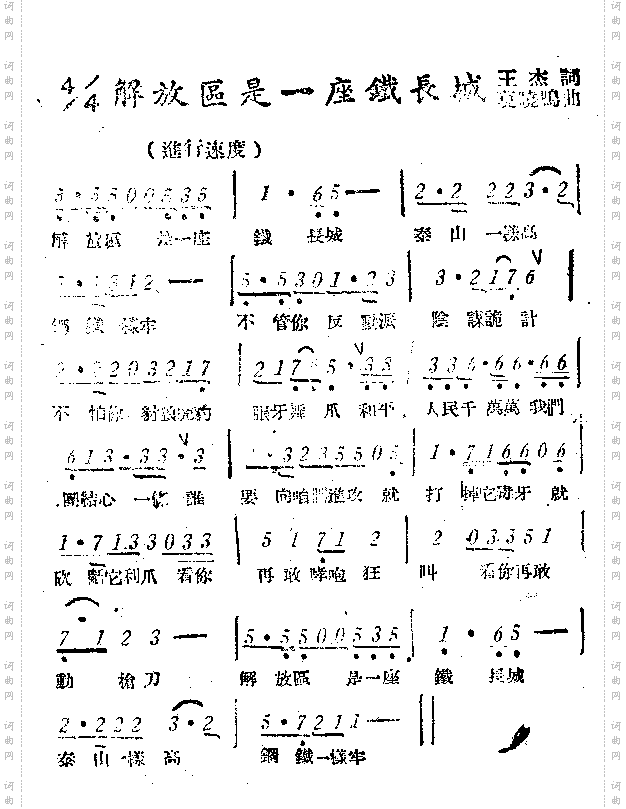 4/4 解放區是一座鐵長城 王杰詞
莫曉鳴曲
(進行速度)
5·55500535 1·65— 2·2 223·2
解放區 是一座 鐵 長城 泰山一樣高
312— 5·5301·233 3·2176
鐵樣牢 不管你反動派 陰謀詭計
不怕你豺狼虎豹 張牙舞爪和平 人民千萬萬我們
613·33·3 1·7166606
團結心一條誰 要向咱們進攻就 打掉它毒牙就
1·713303 3 5 1 71 2 2 03351
砍斷它利爪看你 再敢咆狂 叫 看你再敢
7 1 2 3— 5·55500535 1·65—
動槍刀 解放區 是一座 鐵長城
2·222 3·2 5·7211—
泰山一樣高 鋼鐵一樣牢
词曲网